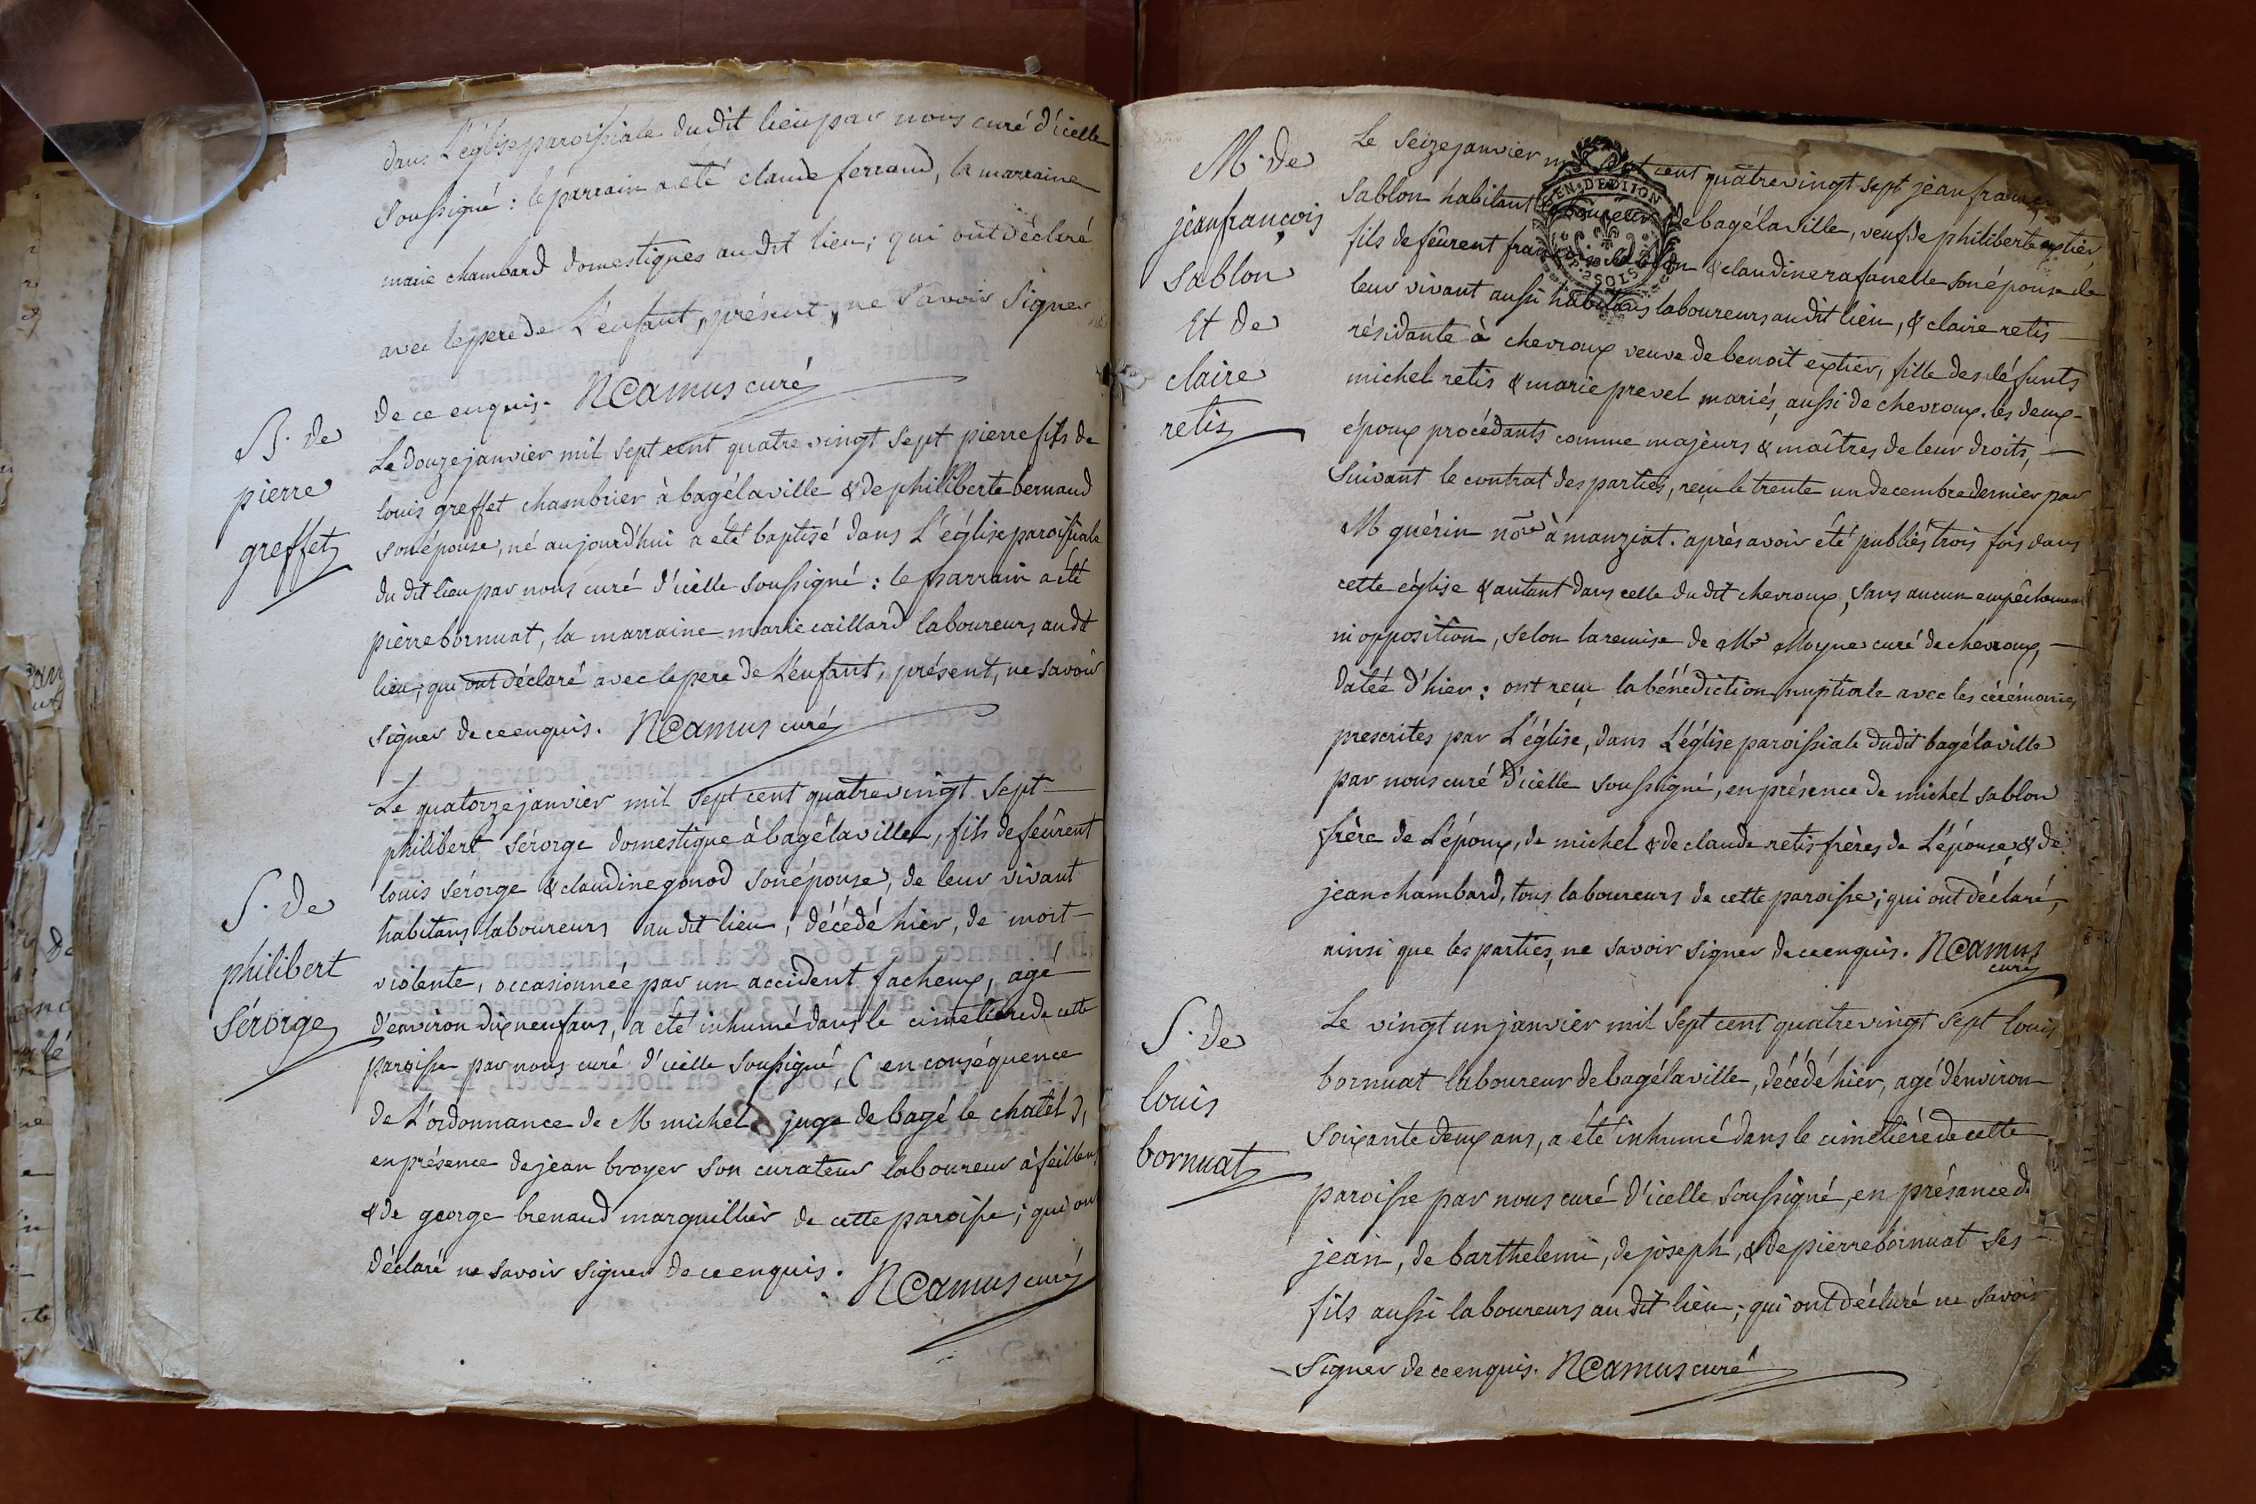 dans L'église paroissiale dudit lieu par nous curé d'icelle
soussigné : le parrain a été claude ferrand, la marraine
marie chambard domestiques audit lieu ; qui ont déclaré
avec le pere de L'enfant, présent, ne savoir signer
de ce enquis. NCamus curé
B. de
pierre
greffet
Le douze janvier mil sept cent quatre vingt sept pierre fils de
louis greffet chambrier à bagélaville & de philiberte bernaud
son épouse, né aujourd'hui a été baptisé dans L'église paroissiale
du dit lieu par nous curé d'icelle soussigné : le parrain a été
pierre bornuat, la marraine marie caillard laboureurs audit
lieu, qui ont déclaré avec le pere de L'enfant, présent, ne savoir
signer de ce enquis. NCamus curé
S. de
philibert
sérorge
Le quatorze janvier mil sept cent quatre vingt sept
philibert sérorge domestique à bagélaville, fils de feûrent
louis sérorge & claudine gonod son épouse, de leur vivant
habitans laboureurs au dit lieu ; décédé hier, de mort
violente, occasionnée par un accident facheux, agé
d'environ dix neuf ans, a été inhumé dans le cimetiere de cette
paroisse par nous curé d'icelle soussigné, ( en conséquence
de L'ordonnance de M michel juge de bagé le chatel ),
en présence de jean broyer son curateur laboureur à feillens
& de george brenaud marguillier de cette paroisse ; qui ont
déclaré ne savoir signer de ce enquis. NCamus curé
M. de
jean françois
sablon
Et de
claire
retis
Le seize janvier cent quatre vingt sept jean françois
sablon habitant laboureur de bagélaville, veuf de philiberte extier,
fils de feûrent & claudine rafanelle son épouse de
leur vivant aussi habitans laboureurs audit lieu, & claire retis
résidante à chevroux veuve de benoit extier, fille des défunts
michel retis & marie prevel mariés aussi de chevroux. les deux
époux procédants comme majeurs & maîtres de leur droits,
suivant le contrat des parties, reçu le trente un decembre dernier par
M guérin no.re à manziat. après avoir été publiés trois fois dans
cette église & autant dans celle du dit chevroux, sans aucun empêchement
ni opposition, selon la remise de Mr Moyne curé de chevroux,
datée d'hier : ont reçu la bénédiction nuptiale avec les cérémonies
prescrites par L'église, dans L'église paroissiale dudit bagélaville
par nous curé d'icelle soussigné, en présence de michel sablon
frère de L'époux, de michel & de claude retis frères de L'épouse & de
jean chambard, tous laboureurs de cette paroisse ; qui ont déclaré,
ainsi que les parties, ne savoir signer de ce enquis. NCamus
curé
S. de
louis
bornuat
Le vingt un janvier mil sept cent quatre vingt sept louis
bornuat laboureur de bagélaville, décédé hier, agé d'environ
soixante deux ans, a été inhumé dans le cimetiére de cette
paroisse par nous curé d'icelle soussigné, en présance de
jean, de barthelemi, de joseph, & de pierre bornuat ses
fils aussi laboureurs au dit lieu ; qui ont déclaré ne savoir
signer de ce enquis. NCamus curé